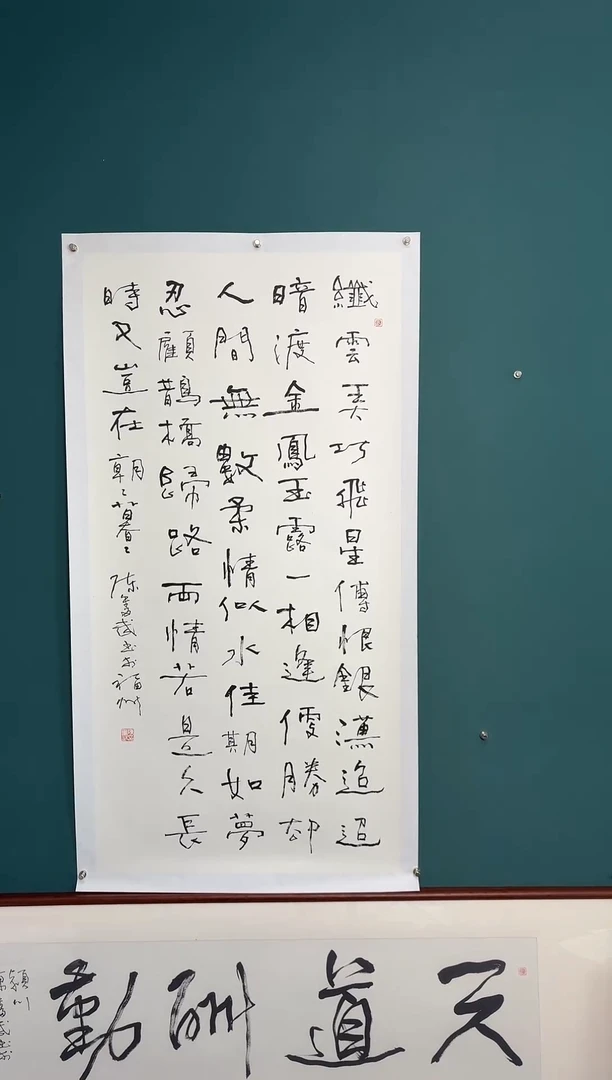 纖雲弄巧飛星傳恨銀漢迢迢
暗渡金鳳玉露一相逢便勝却
人間無數柔情似水佳期如夢
忍顧鵲橋歸路兩情若是久長
時又豈在朝々暮々 陳奮武书於福州
天道酬勤
潁川
陳奮武书於